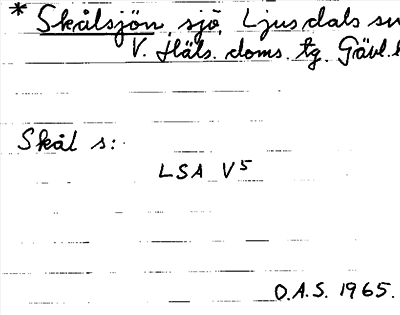 * Skålsjön, sjö, Ljusdals sn
V. Häls. doms. tg. Gävl. l
Skål s:
LSA V5
O.A.S. 1965.